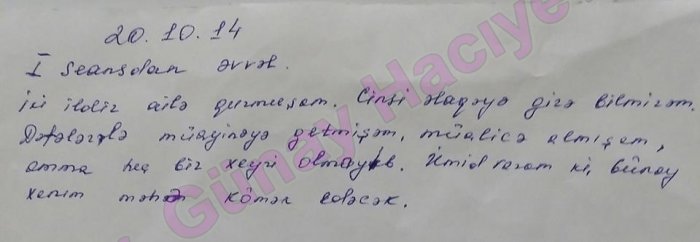 20.10.14
I Seansdan əvvəl.
İki ildir ailə qurmuşam. Cinsi əlaqəyə girə bilmirəm.
Dəfələrlə müayinəyə getmişəm, müalicə almışam,
amma heç bir xeyri olmayıb. Ümidvaram ki, Günay
xanım mənə kömək edəcək.
Günay Hacıye